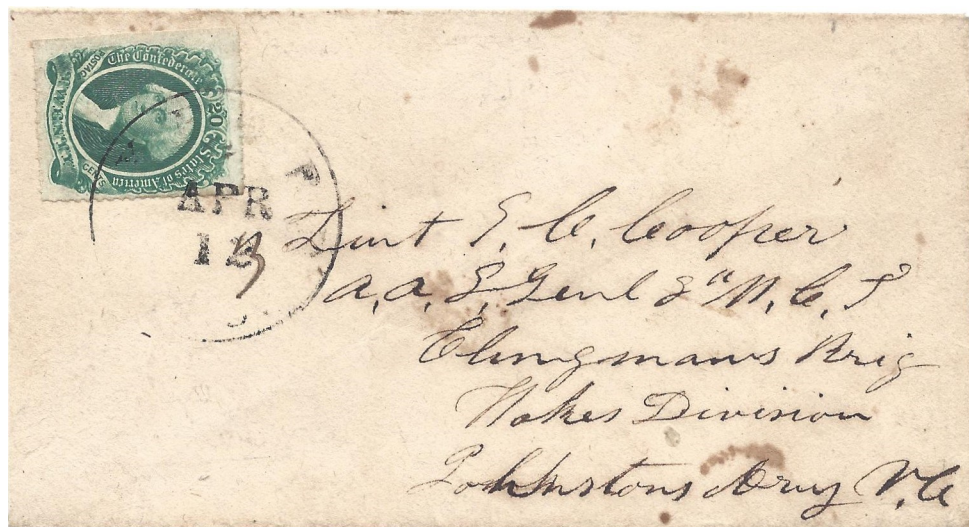 The Confederate
States of America
20
CENTS
APR
12
3
Liut S. C. Cooper
A. A. S. Genl 8" N. C. T
Clingmans Brig
Hokes Division
Johnstons Army N. C